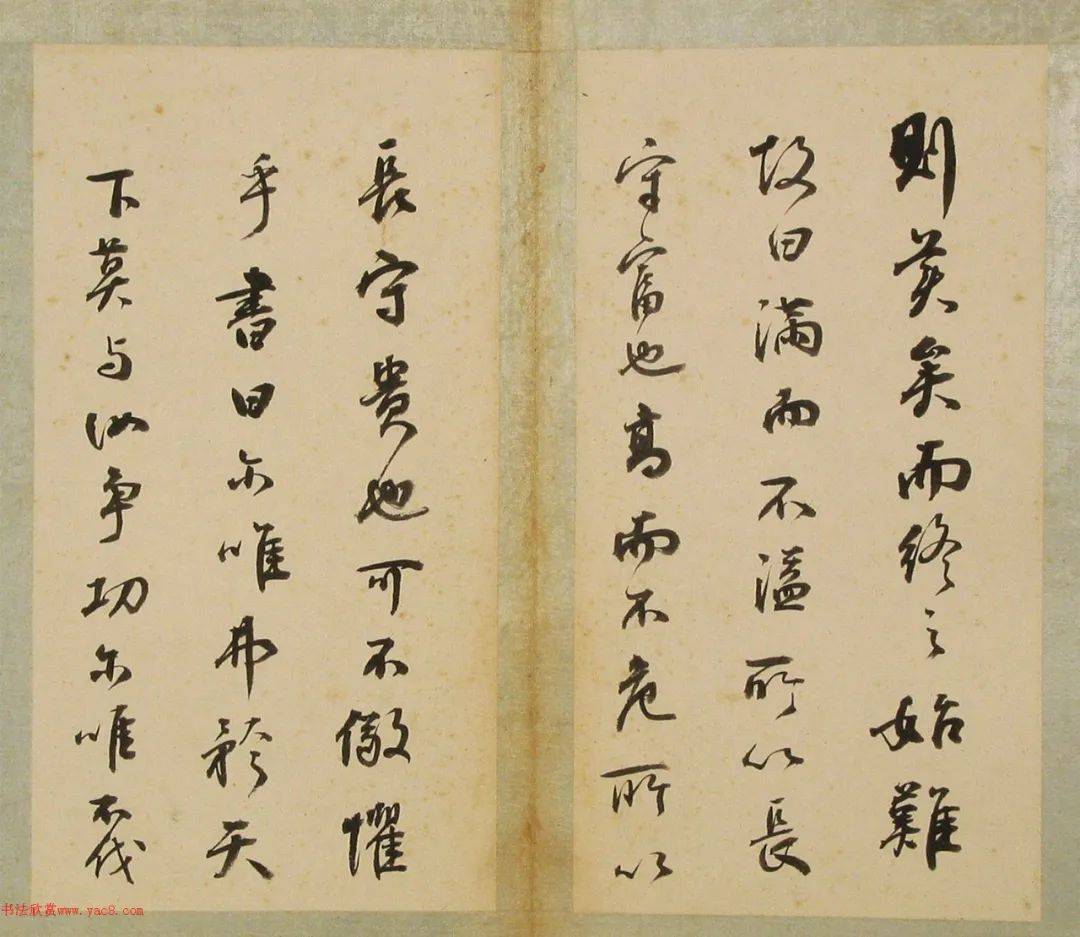 則美矣而終之始難
故曰滿而不溢所以長
守富也高而不危所以
長守貴也可不儆懼
乎書曰尔唯弗矜天
下莫与汝争功尔唯不伐
书法欣赏www.yac8.com